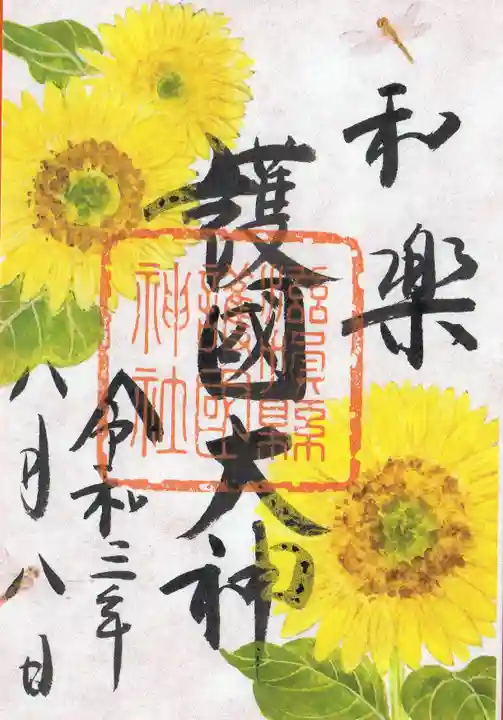 和楽
護國大神
護國
神社
令和三年
八月八日